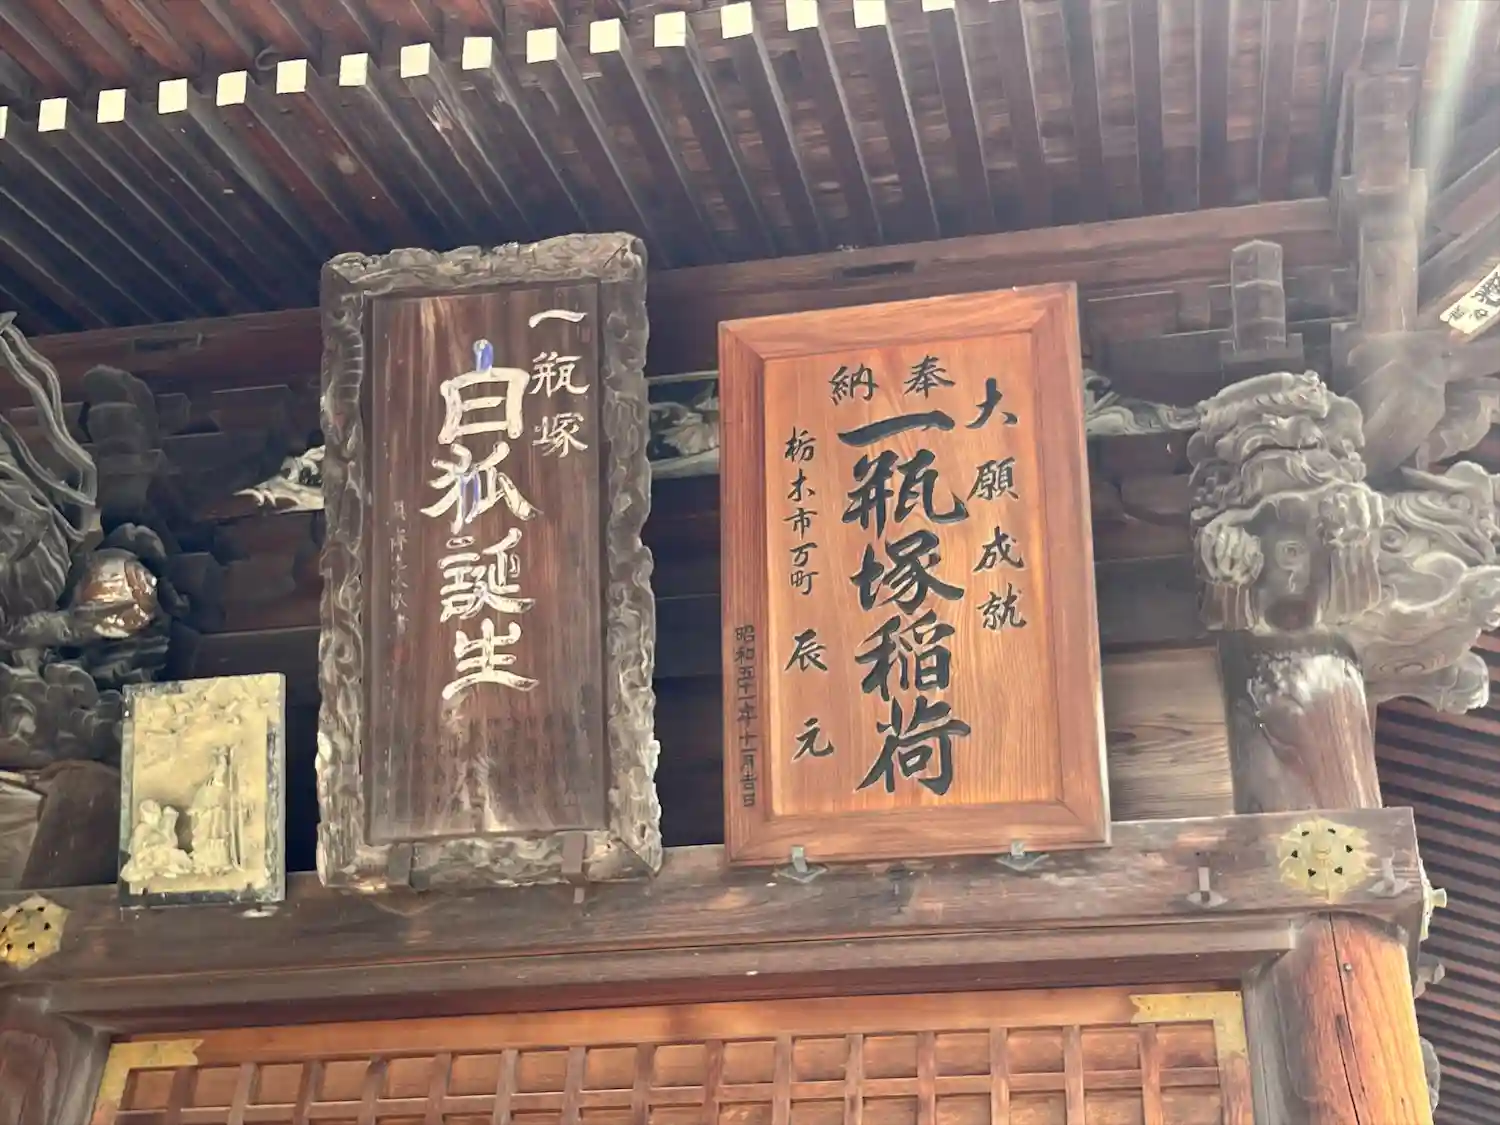 大願成就
奉納
一瓶塚稲荷
栃木市万町
辰元
昭和五十一年十一月吉日
一瓶塚
白狐誕生